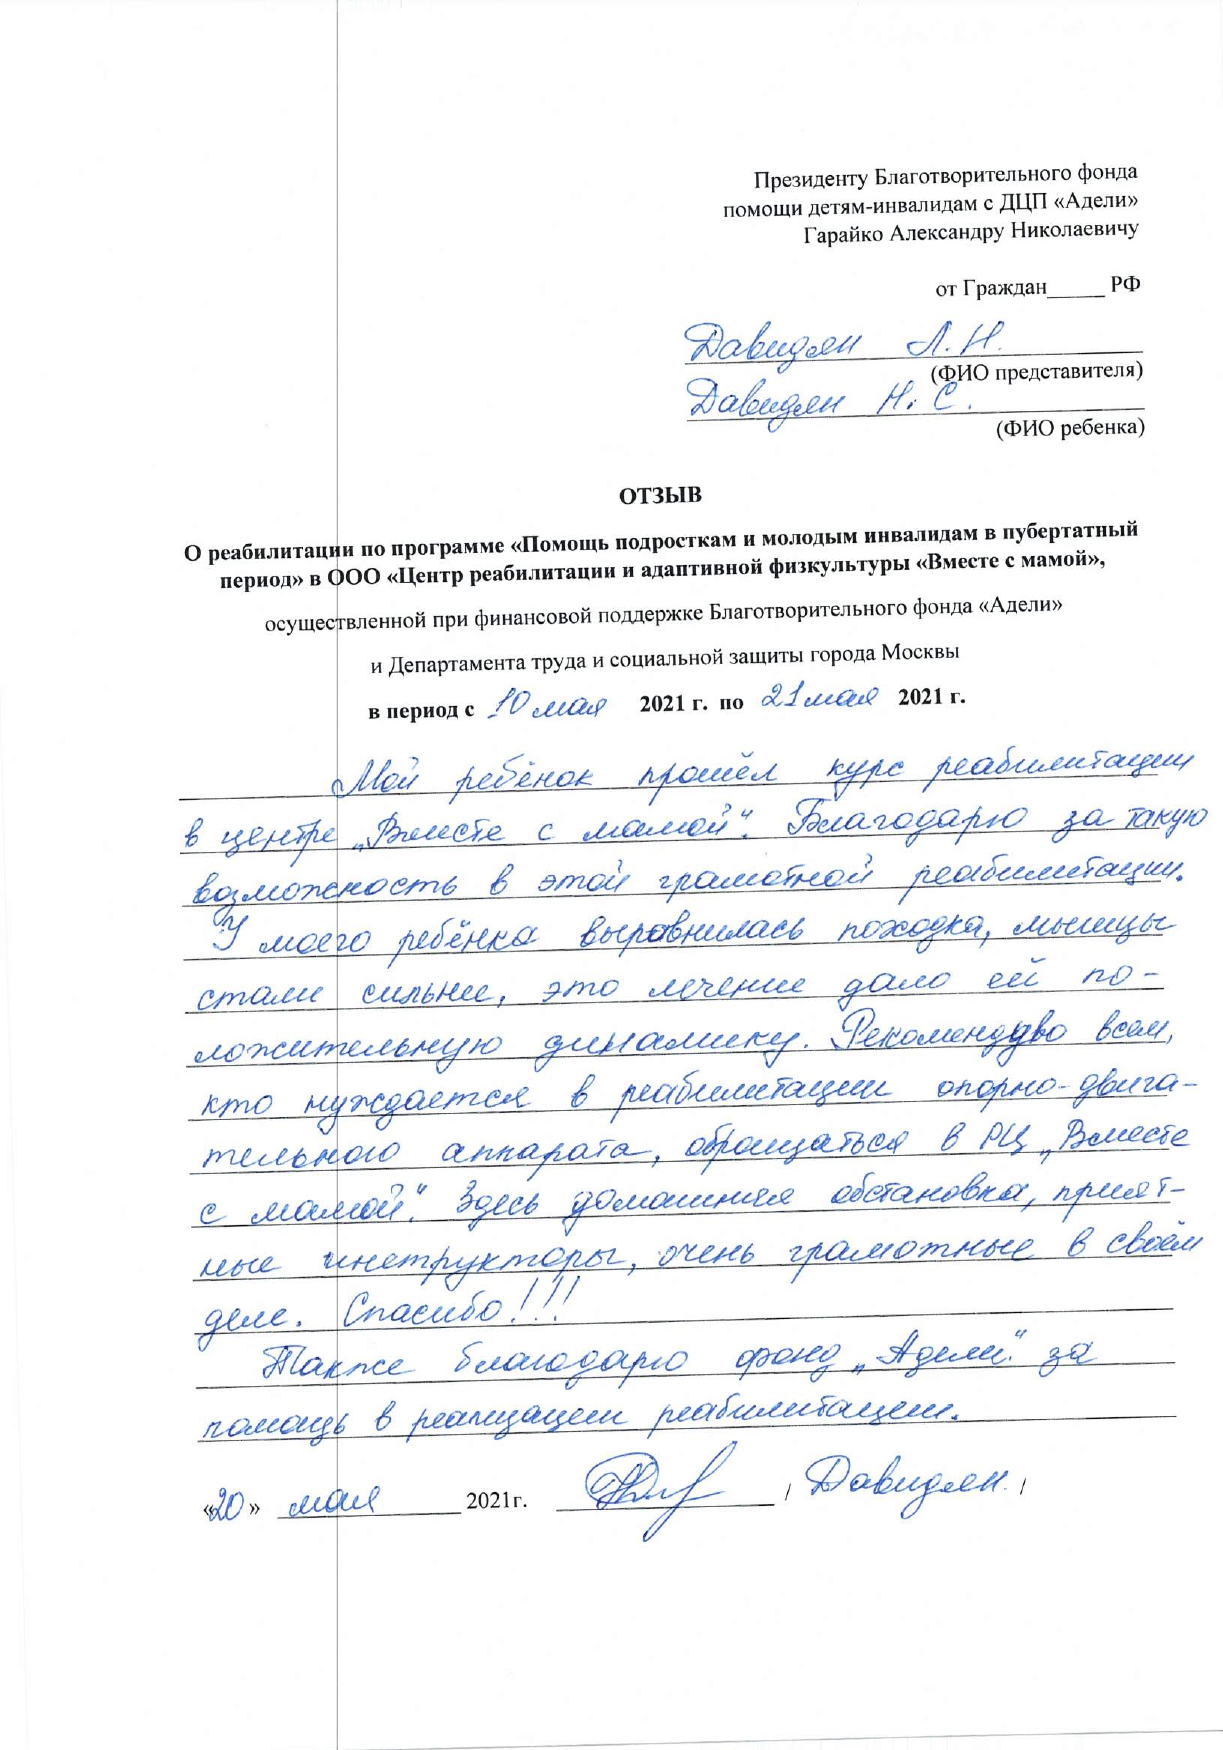 Президенту Благотворительного фонда
помощи детям-инвалидам с ДЦП «Адели»
Гарайко Александру Николаевичу
от Граждан_____ РФ
Давидян Л.Н.
(ФИО представителя)
Давидян Н.С.
(ФИО ребенка)
ОТЗЫВ
О реабилитации по программе «Помощь подросткам и молодым инвалидам в пубертатный
период» в ООО «Центр реабилитации и адаптивной физкультуры «Вместе с мамой»,
осуществленной при финансовой поддержке Благотворительного фонда «Адели»
и Департамента труда и социальной защиты города Москвы
в период с 10 мая 2021 г. по 21 мая 2021 г.
Мой ребёнок прошёл курс реабилитации
в центре „Вместе с мамой". Благодарю за такую
возможность в этой грамотной реабилитации.
У моего ребёнка выровнилась походка, мышцы
стали сильнее, это лечение дало ей по-
ложительную динамику. Рекомендую всем,
кто нуждается в реабилитации опорно-двига-
тельного аппарата, обращаться в РЦ „Вместе
с мамой". Здесь домашняя обстановка, прият-
ные инструкторы, очень грамотные в своём
деле. Спасибо!!!
Также благодарю фонд „Адели" за
помощь в реализации реабилитации.
«20» мая 2021г. / Давидян. /